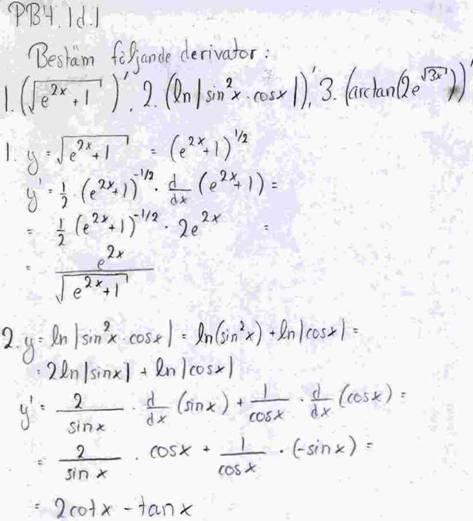 PB4.1d.1
Bestäm följande derivator:
1. (√(e^(2x)+1))', 2. (ln|sin²x·cosx|)', 3. (arctan(2e^(√(3x))))'
1. y=√(e^(2x)+1) = (e^(2x)+1)^(1/2)
y'=1/2·(e^(2x)+1)^(-1/2)·d/dx(e^(2x)+1)=
= 1/2(e^(2x)+1)^(-1/2)·2e^(2x) =
= e^(2x)/√(e^(2x)+1)
2. y=ln|sin²x·cosx|=ln(sin²x)+ln|cosx|=
=2ln|sinx|+ln|cosx|
y'=2/sinx·d/dx(sinx)+1/cosx·d/dx(cosx)=
= 2/sinx·cosx+1/cosx·(-sinx)=
= 2cotx-tanx